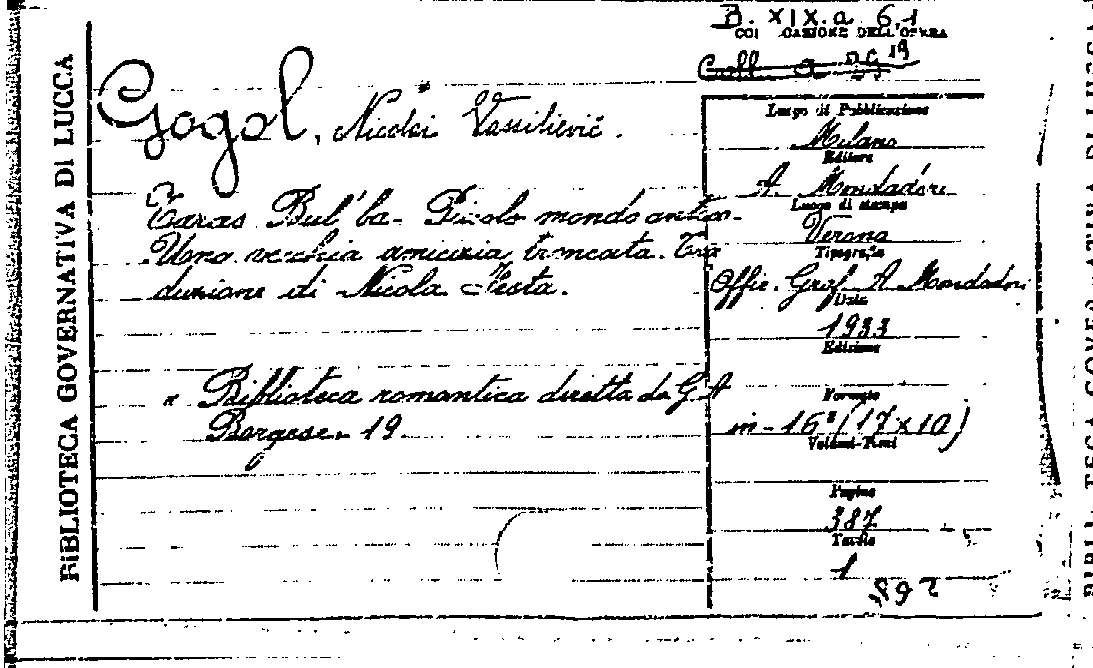 B. XIX.a 6.1
COLLOCAZIONE DELL'OPERA
Coll. a 25 19
BIBLIOTECA GOVERNATIVA DI LUCCA
Gogol, Nicolai Vassilievič.
Taras Bul'ba - Piccolo mondo antico -
Una vecchia amicizia troncata. Tra
duzione di Nicola Festa.
" Biblioteca romantica diretta da G. A
Borgese - 19.
Luogo di Pubblicazione
Milano
Editore
A. Mondadori
Luogo di stampa
Verona
Tipografia
Offic. Graf. A. Mondadori
Data
1933
Edizione
Formato
in-16° (17x10)
Volumi-Tomi
Pagine
387
Tavole
1